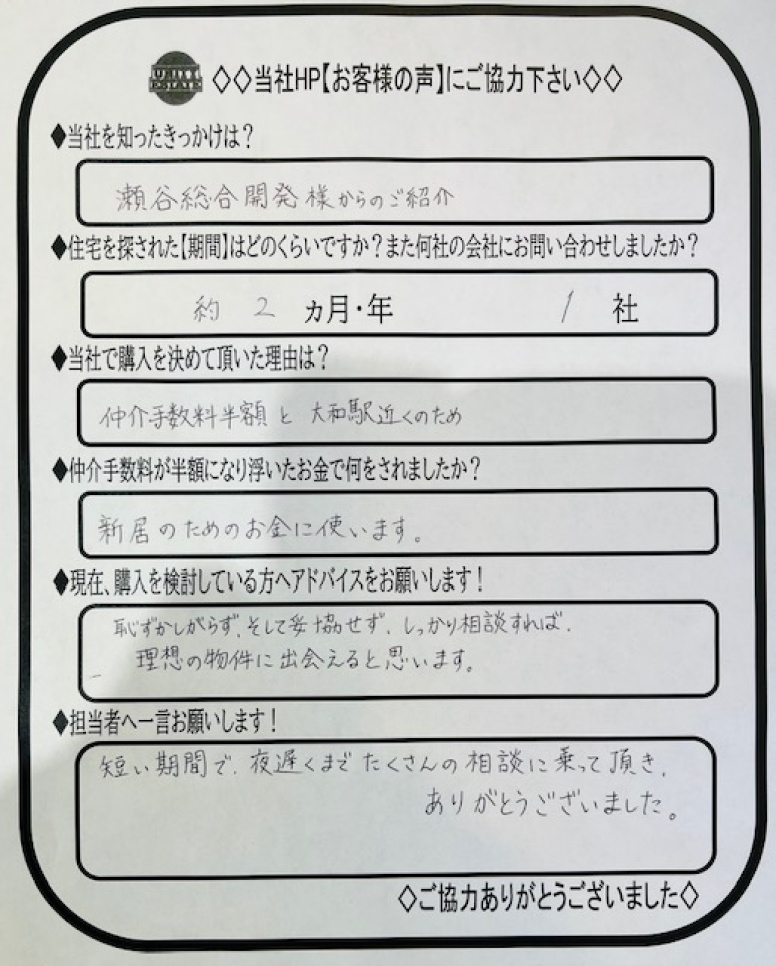 ◇◇当社HP【お客様の声】にご協力下さい◇◇
◆当社を知ったきっかけは？
瀬谷総合開発様からのご紹介
◆住宅を探された【期間】はどのくらいですか？また何社の会社にお問い合わせしましたか？
約 2 ヵ月・年 1 社
◆当社で購入を決めて頂いた理由は？
仲介手数料半額と 大和駅近くのため
◆仲介手数料が半額になり浮いたお金で何をされましたか？
新居のためのお金に使います。
◆現在、購入を検討している方へアドバイスをお願いします！
恥ずかしがらず、そして妥協せず、しっかり相談すれば、
理想の物件に出会えると思います。
◆担当者へ一言お願いします！
短い期間で、夜遅くまでたくさんの相談に乗って頂き、
ありがとうございました。
◇ご協力ありがとうございました◇